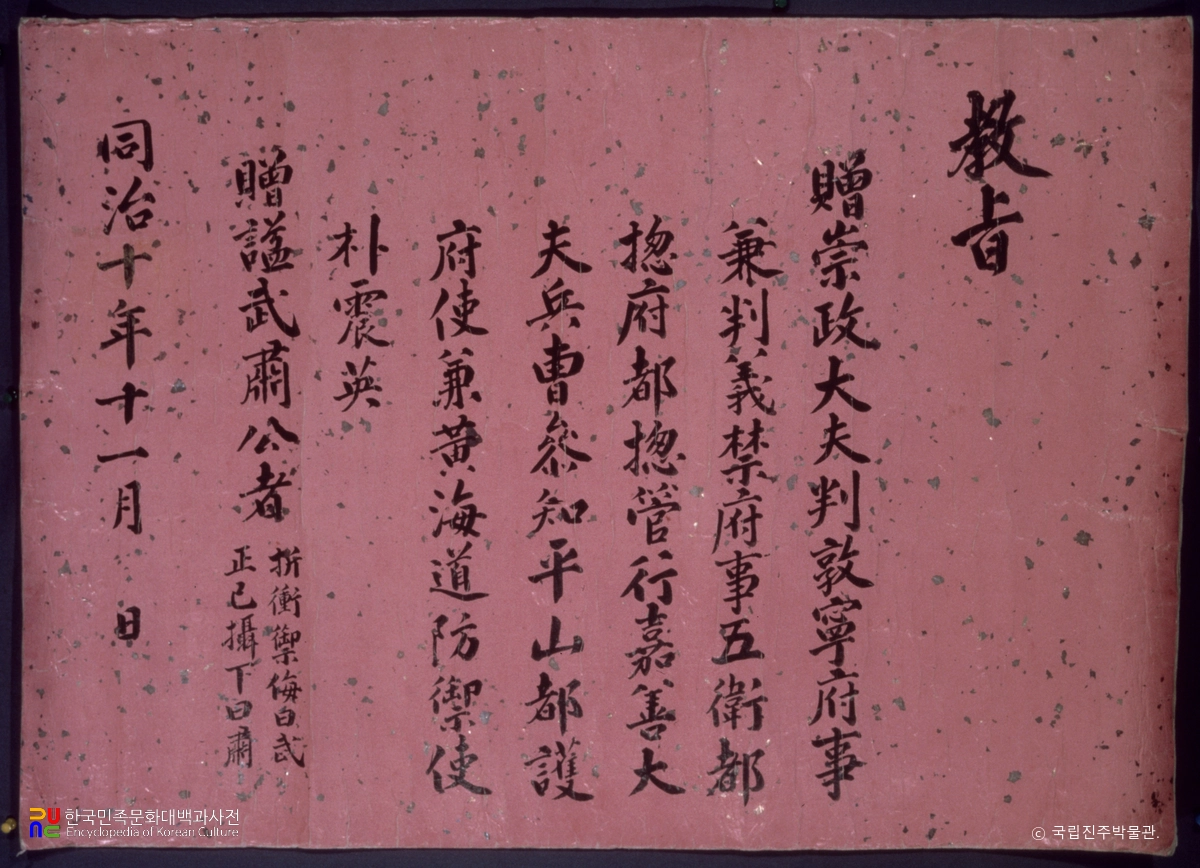 教旨
贈崇政大夫判敦寧府事
兼判義禁府事五衛都
摠府都摠管行嘉善大
夫兵曹參知平山都護
府使兼黃海道防禦使
朴震英
贈諡武肅公者
折衝禦侮曰武
正己攝下曰肅
同治十年十一月 日
한국민족문화대백과사전
Encyclopedia of Korean Culture
© 국립진주박물관.